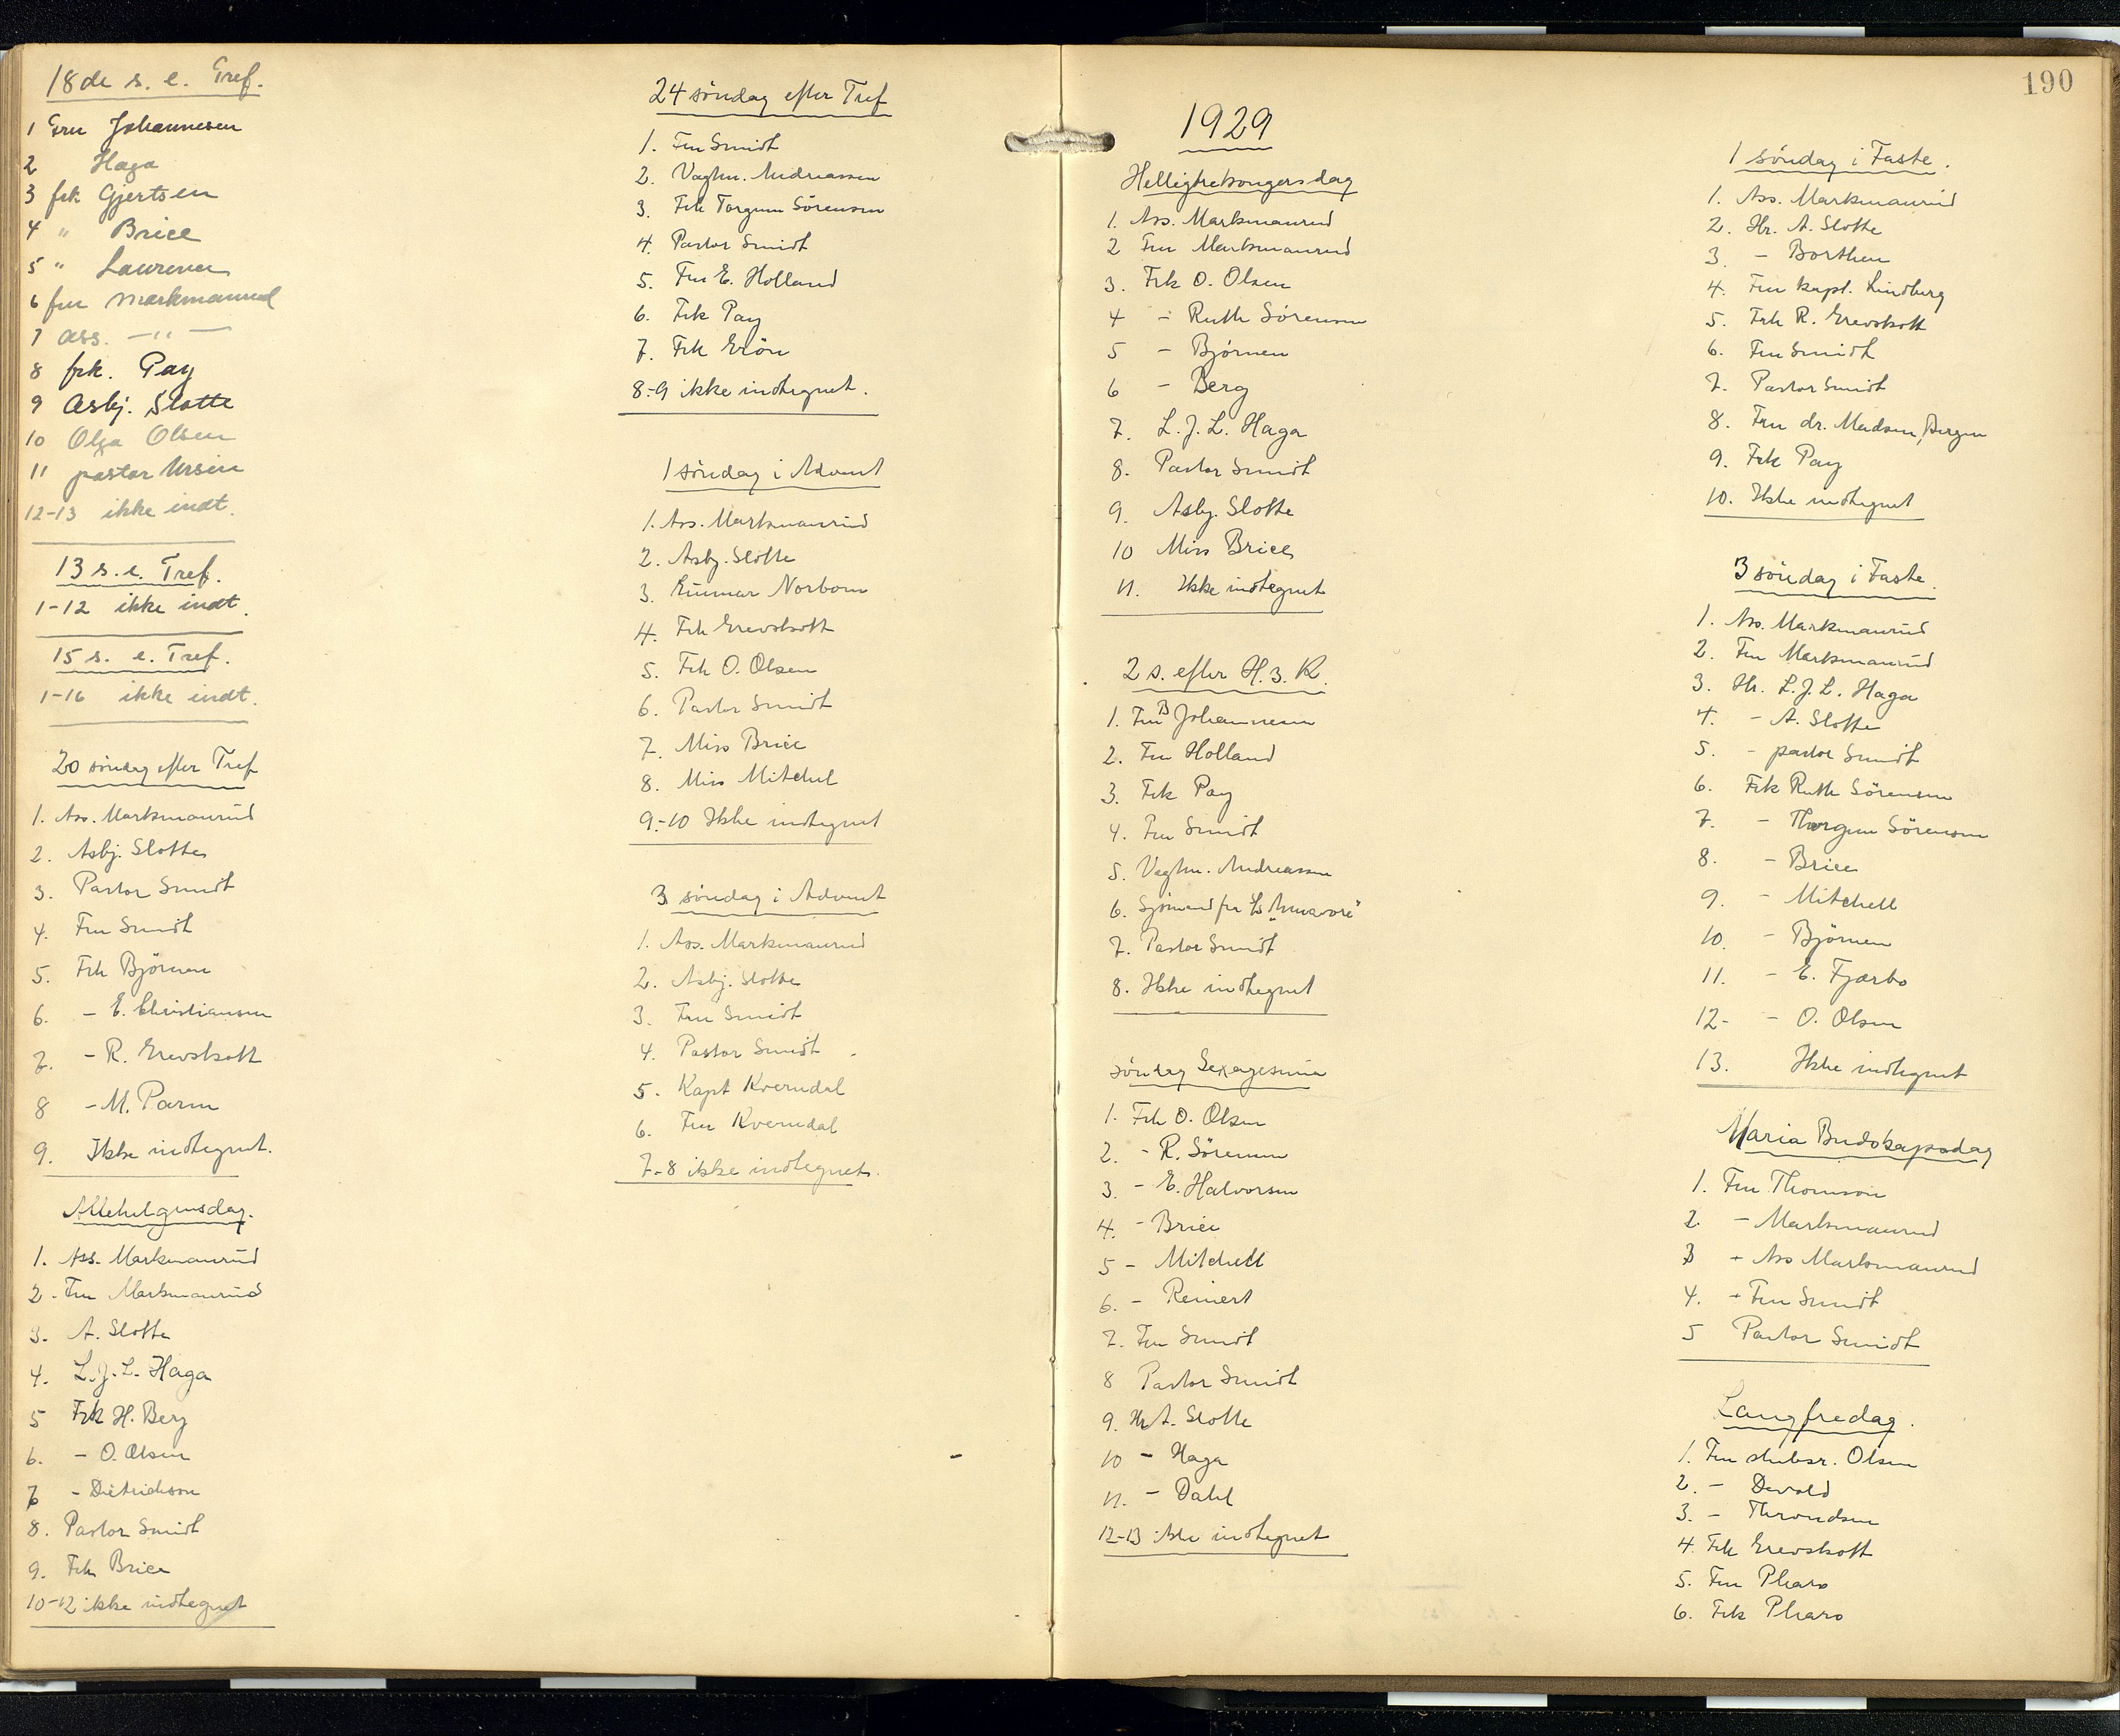 18de s. e. Tref.
1 Fru Johannesen
2 Haga
3 frk Gjertsen
4 " Brice
5 " Laurence
6 fru Markmanrud
7 ass. — " —
8 frk. Pay
9 Asbj. Slotte
10 Olga Olsen
11 pastor Ursin
12-13 ikke indt.
13 s. e. Tref.
1-12 ikke indt.
15 s. e. Tref.
1-16 ikke indt.
20 søndag efter Tref
1. Ass. Markmanrud
2. Asbj. Slotte
3. Pastor Smidt
4. Fru Smidt
5. Frk Bjørnen
6. - E. Christiansen
7. - R. Grevskott
8 - M. Parm
9. Ikke indtegnet.
Allehelgensdag.
1. Ass. Markmanrud
2. Fru Markmanrud
3. A. Slotte
4. L. J. L. Haga
5 Frk H. Berg
6. - O. Olsen
7 - Dietrichson
8. Pastor Smidt
9. Frk Brice
10-12 ikke indtegnet
24 søndag efter Tref
1. Fru Smidt
2. Vaghn. Andreassen
3. Frk Torgunn Sörensen
4. Pastor Smidt
5. Fru E. Holland
6. Frk Pay
7. Frk Grön
8-9 ikke indtegnet.
1 søndag i Advent
1. Ass. Markmanrud
2. Asbj. Slotte
3. Gunnar Norbom
4. Frk Grevskott
5. Frk O. Olsen
6. Pastor Smidt
7. Miss Brice
8. Miss Mitchel
9-10 Ikke indtegnet
3 søndag i Advent
1. Ass. Markmanrud
2. Asbj. Slotte
3. Fru Smidt
4. Pastor Smidt
5. Kapt Kverndal
6. Fru Kverndal
7-8 ikke indtegnet.
190
1929
Helligtrekongersdag
1. Ass. Markmanrud
2 Fru Markmanrud
3. Frk O. Olsen
4 - Ruth Sörensen
5 - Bjørnen
6 - Berg
7. L. J. L. Haga
8. Pastor Smidt
9. Asbj. Slotte
10 Miss Brice
11. Ikke indtegnet
2 s. efter H. 3. K.
1. Fru B Johannesen
2. Fru Holland
3. Frk Pay
4. Fru Smidt
5. Vaghn. Andreassen
6. Sjømand fra
7. Pastor Smidt
8. Ikke indtegnet
søndag Sexagesima
1. Frk O. Olsen
2. - R. Sörensen
3. - E. Halvorsen
4. - Brice
5 - Mitchell
6. - Reinert
7. Fru Smidt
8 Pastor Smidt
9. Hr A. Slotte
10 - Haga
11. - Dahl
12-13 ikke indtegnet
1 søndag i Faste.
1. Ass. Markmanrud
2. Hr. A. Slotte
3. - Borthen
4. Fru kapt. Lindberg
5. Frk R. Grevskott
6. Fru Smidt
7. Pastor Smidt
8. Fru dr. Madsen, Bergen
9. Frk Pay
10. Ikke indtegnet
3 søndag i Faste.
1. Ass. Markmanrud
2. Fru Markmanrud
3. Hr. L. J. L. Haga
4. - A. Slotte
5. - pastor Smidt
6. Frk Ruth Sörensen
7. - Thorgun Sörensen
8. - Brice
9. - Mitchell
10. - Björnen
11. - E. Fjærbo
12- - O. Olsen
13. Ikke indtegnet
Maria Budskapsdag
1. Fru Thomson
2. - Markmanrud
3 - Ass Markmanrud
4. - Fru Smidt
5 Pastor Smidt
Langfredag.
1. Fru skibsr. Olsen
2. - Devold
3. - Throndsen
4. Frk Grevskott
5. Fru Pharo
6. Frk Pharo